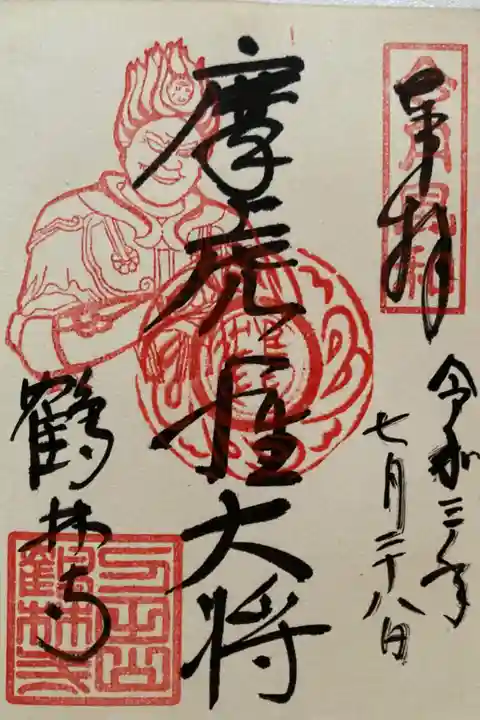 奉拝
令和三年
七月二十八日
摩虎羅大将
鶴林寺
鶴林寺